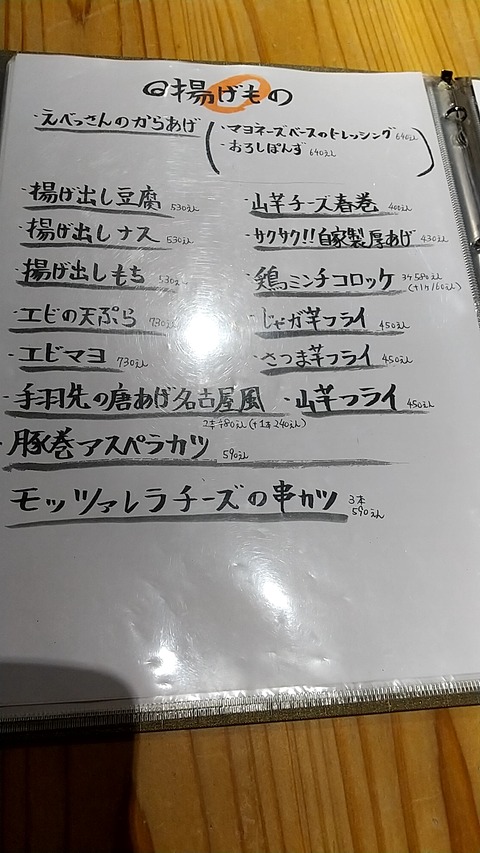 揚げもの
・えべっさんのからあげ
・マヨネーズベースのドレッシング 640えん
・おろしぽんず 640えん
・揚げ出し豆腐 530えん
・山芋チーズ春巻 400えん
・揚げ出しナス 530えん
・サクサク!!自家製厚あげ 430えん
・揚げ出しもち 530えん
・鶏ミンチコロッケ 3ケ580えん
(+1ケ160えん)
・エビの天ぷら 730えん
・じゃが芋フライ 450えん
・エビマヨ 730えん
・さつま芋フライ 450えん
・手羽先の唐あげ名古屋風
2本480えん(+1本240えん)
・山芋フライ 450えん
・豚巻アスペラカツ 590えん
モッツァレラチーズの串カツ 3本
590えん